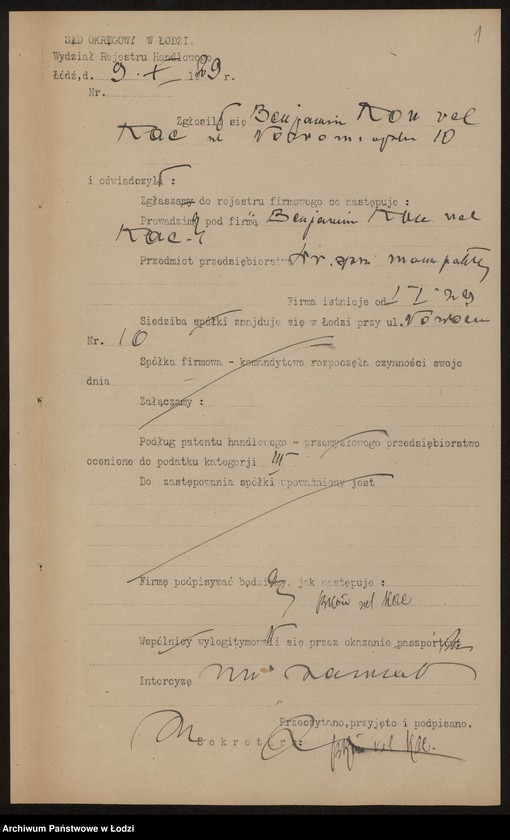 1
SĄD OKRĘGOWY W ŁODZI.
Wydział Rejestru Handlowego
Łódź,d. 9 . X 1929 r.
Nr.
Zgłosił się Benjamin Kon vel
Kac ul 10
i oświadczył :
Zgłaszamy do rejestru firmowego co następuje :
Prowadzimy pod firmą Benjamin Kon vel
Kac
Przedmiot przedsiębiorstwa
Firma istnieje od 1 I 29
Siedziba spółki znajduje się w Łodzi przy ul.
Nr. 10
Spółka firmowa - komandytowa rozpoczęła czynności swoje
dnia
Załączamy :
Podług patentu handlowego - przemysłowego przedsiębiorstwo
ocenione do podatku kategorji III
Do zastępowania spółki upoważniony jest
Firmę podpisywać będziemy jak następuje :
BKon vel Kac
Wspólnicy wylegitymowali się przez okazanie paszportów
Intercyzę nie zawierał
Przeczytano,przyjęto i podpisano.
Sekretarz:
BKon vel Kac.
Archiwum Państwowe w Łodzi